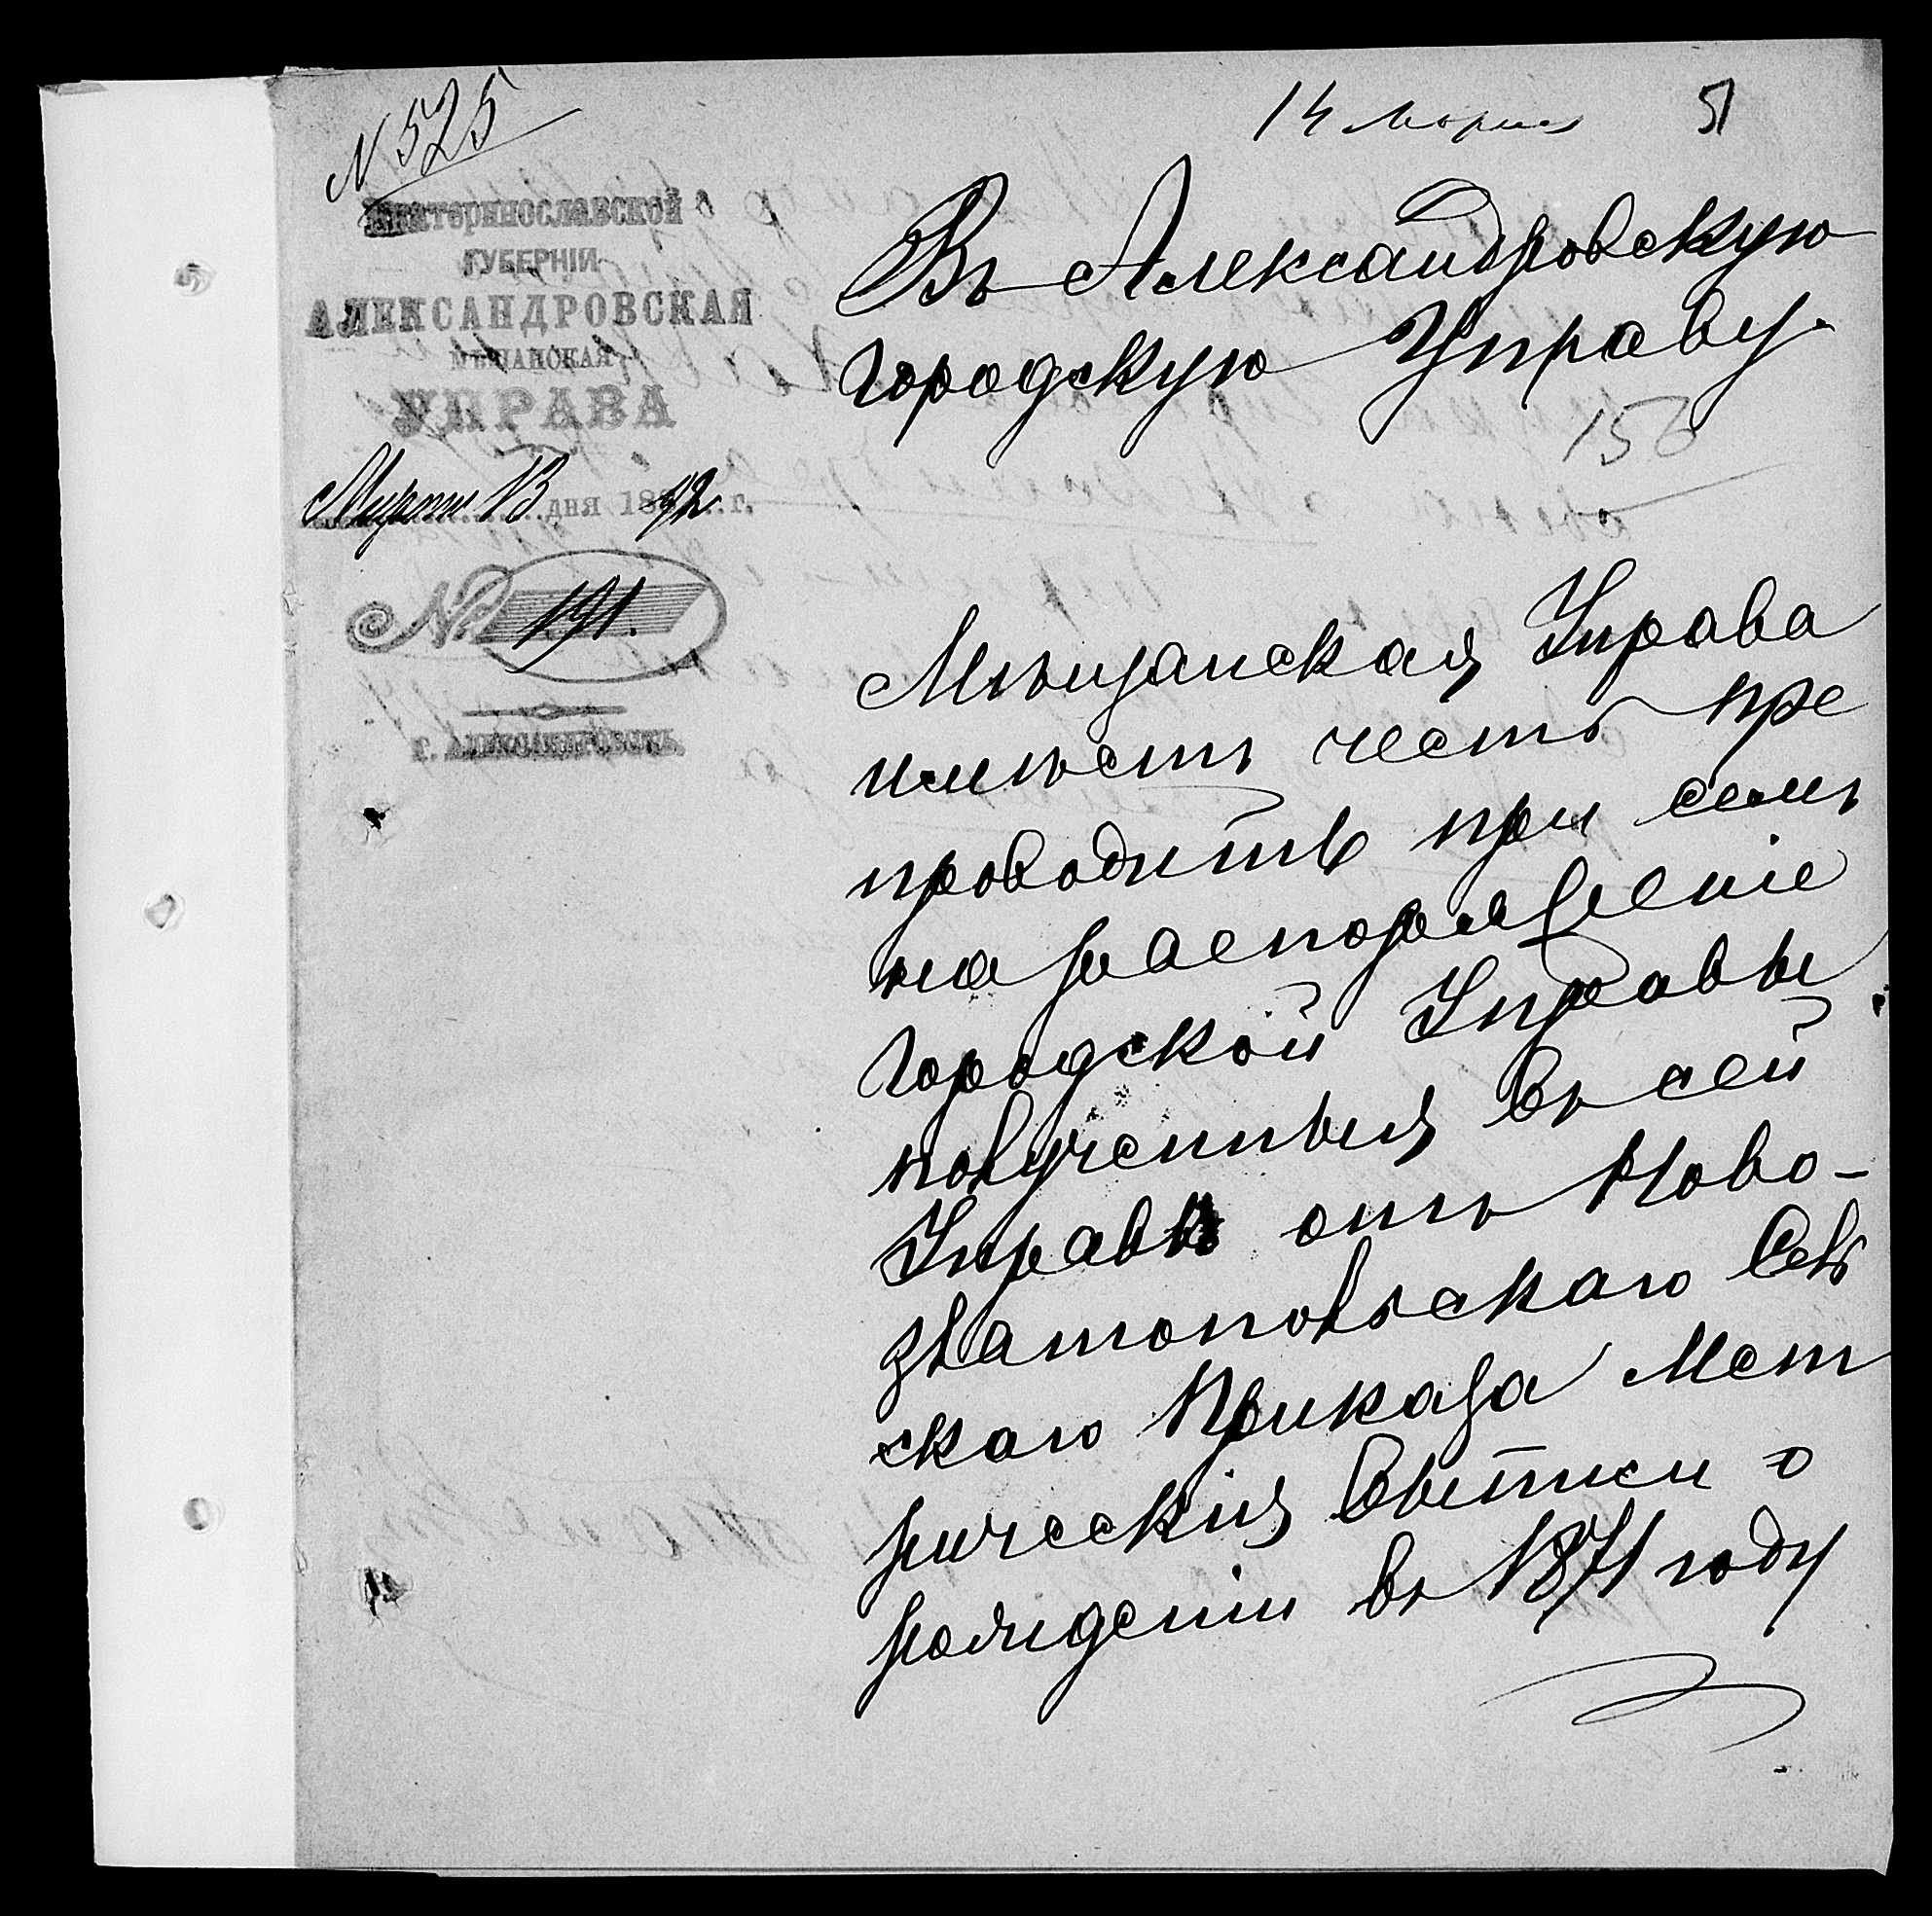 N 525
14 марта
51
Екатеринославской
ГУБЕРНІИ
АЛЕКСАНДРОВСКАЯ
МѢЩАНСКАЯ
УПРАВА
Марта 13 дня 1892 г.
№ 191.
г. АЛЕКСАНДРОВСКЪ.
Въ Александровскую
Городскую Управу.
156
Мѣщанская Управа
имѣетъ честь пре
проводить при семъ
на распоряженіе
Городской Управы
полученныя въ сей
Управѣ отъ Ново-
златопольскаго Сель
скаго Приказа Мет
рическія выписи о
рожденіи въ 1871 году